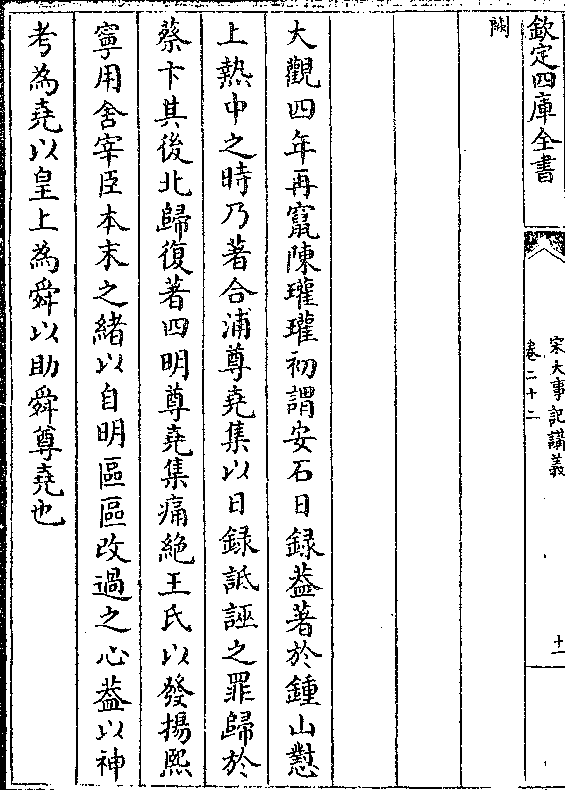 欽定四庫全書
宋大事記講義
卷二十二
十一
闕
大觀四年再竄陳瓘瓘初謂安石日録葢著於鍾山懟
上熱中之時乃著合浦尊堯集以日録詆誣之罪歸於
蔡卞其後北歸復著四明尊堯集痛絶王氏以發揚熈
寧用舍宰臣本末之緒以自明區區改過之心葢以神
考為堯以皇上為舜以助舜尊堯也